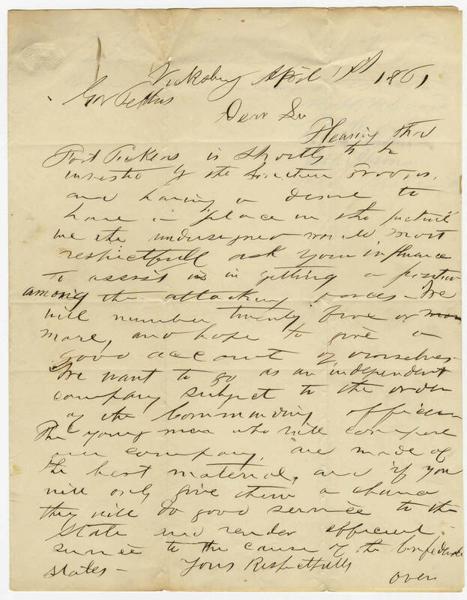 Vicksburg April 1st 1861
Gov Pettus
Dear Sir
Hearing that
Fort Pickens is shortly to be
invested by the Southern troops,
and having a desire to
have a place in the picture
we the undersigned would most
respectfull ask your influence
to assist us in getting a position
among the attacking forces - We
will number twenty five or
more, and hope to give a
good account of ourselves
We want to go as an independent
company, subject to the order
of the Commanding officer
The young men who will compose
our company, are made of
the best material, and if you
will only give them a chance
they will do good service to the
State and render efficient
service to the cause of the Confederate
States - Yours Respectfully
over